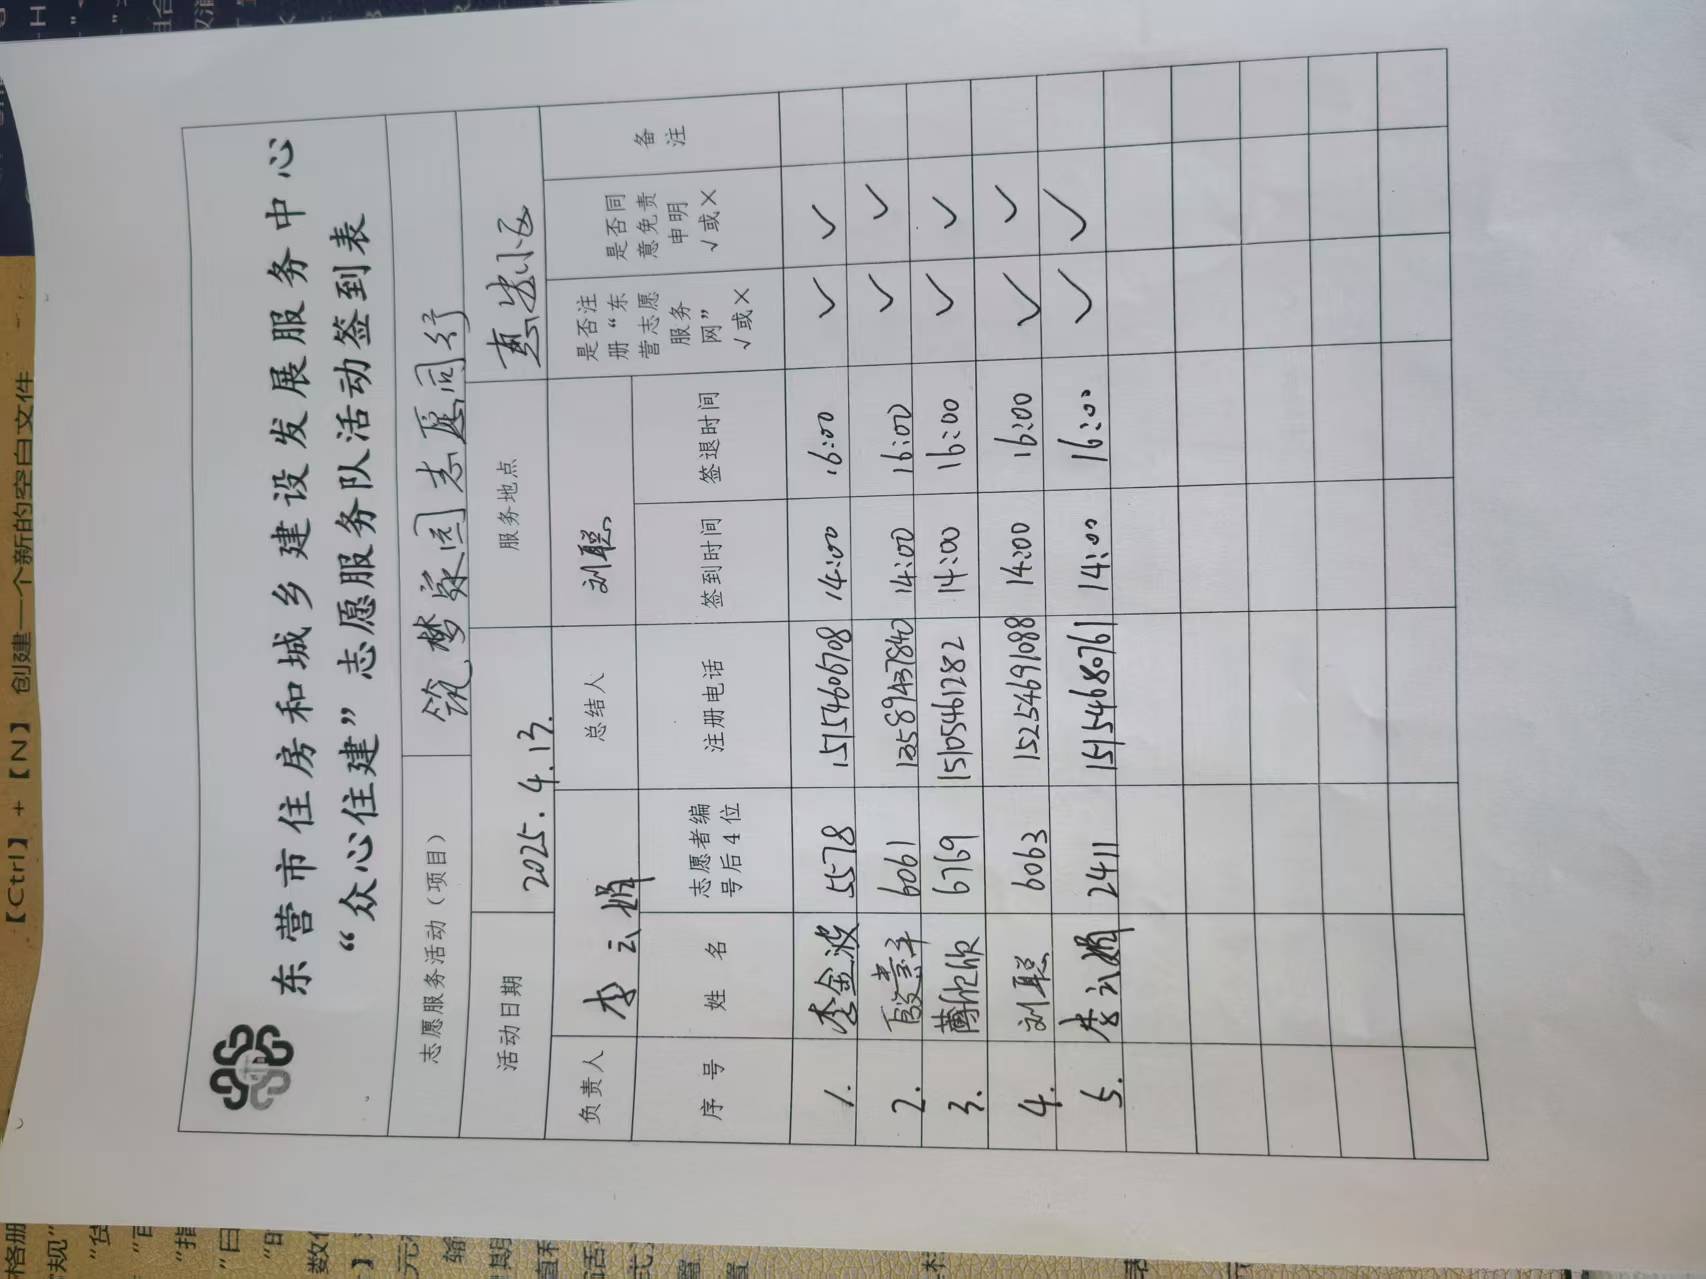 【Ctrl】+【N】 创建一个新的空白文件
东营市住房和城乡建设发展服务中心
“众心住建”志愿服务队活动签到表
志愿服务活动（项目） 筑梦家园志愿同行
活动日期 2025.4.13. 服务地点 惠安小区
负责人 李云娟 总结人 刘聪
序号 姓名 志愿者编号后4位 注册电话 签到时间 签退时间 是否注册“东营志愿服务网”√或× 是否同意免责申明√或× 备注
1. 李金波 5578 15154606708 14:00 16:00 ✓ ✓
2. 6061 13589437840 14:00 16:00 ✓ ✓
3. 6769 15105461282 14:00 16:00 ✓ ✓
4. 刘聪 6063 15254691088 14:00 16:00 ✓ ✓
5. 李云娟 2411 15154680761 14:00 16:00 ✓ ✓